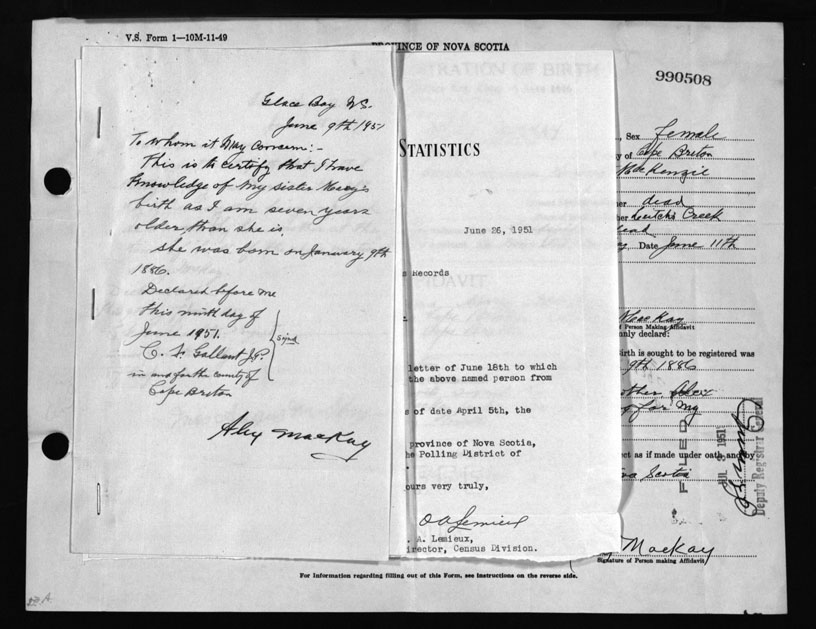 V.S. Form 1—10M-11-49
PROVINCE OF NOVA SCOTIA
990508
Glace Bay N.S.
June 9th 1951
To whom it May Concern:-
This is to certify that I have
knowledge of my sister Mary's
birth as I am seven years
older than she is.
She was born on January 9th
1886.
Declared before me
this ninth day of
June 1951.
C. Gallant J.P.
in and for the county of
Cape Breton
Signed
Alex MacKay
STATISTICS
June 26, 1951
Records
letter of June 18th to which
the above named person from
of date April 5th, the
province of Nova Scotia,
the Polling District of
ours very truly,
O A Lemieux
. A. Lemieux,
irector, Census Division.
RATION OF BIRTH
, Sex Female
y of Cape Breton
MacKenzie
her dead
her Leitches Creek
dead
Date June 11th
MacKay
of Person Making Affidavit
nly declare:
Birth is sought to be registered was
9th 1886
for my
ct as if made under oath and by
Nova Scotia
FILED
JUL 3 1951
Deputy Registrar General
MacKay
Signature of Person making Affidavit
For Information regarding filling out of this Form, see instructions on the reverse side.